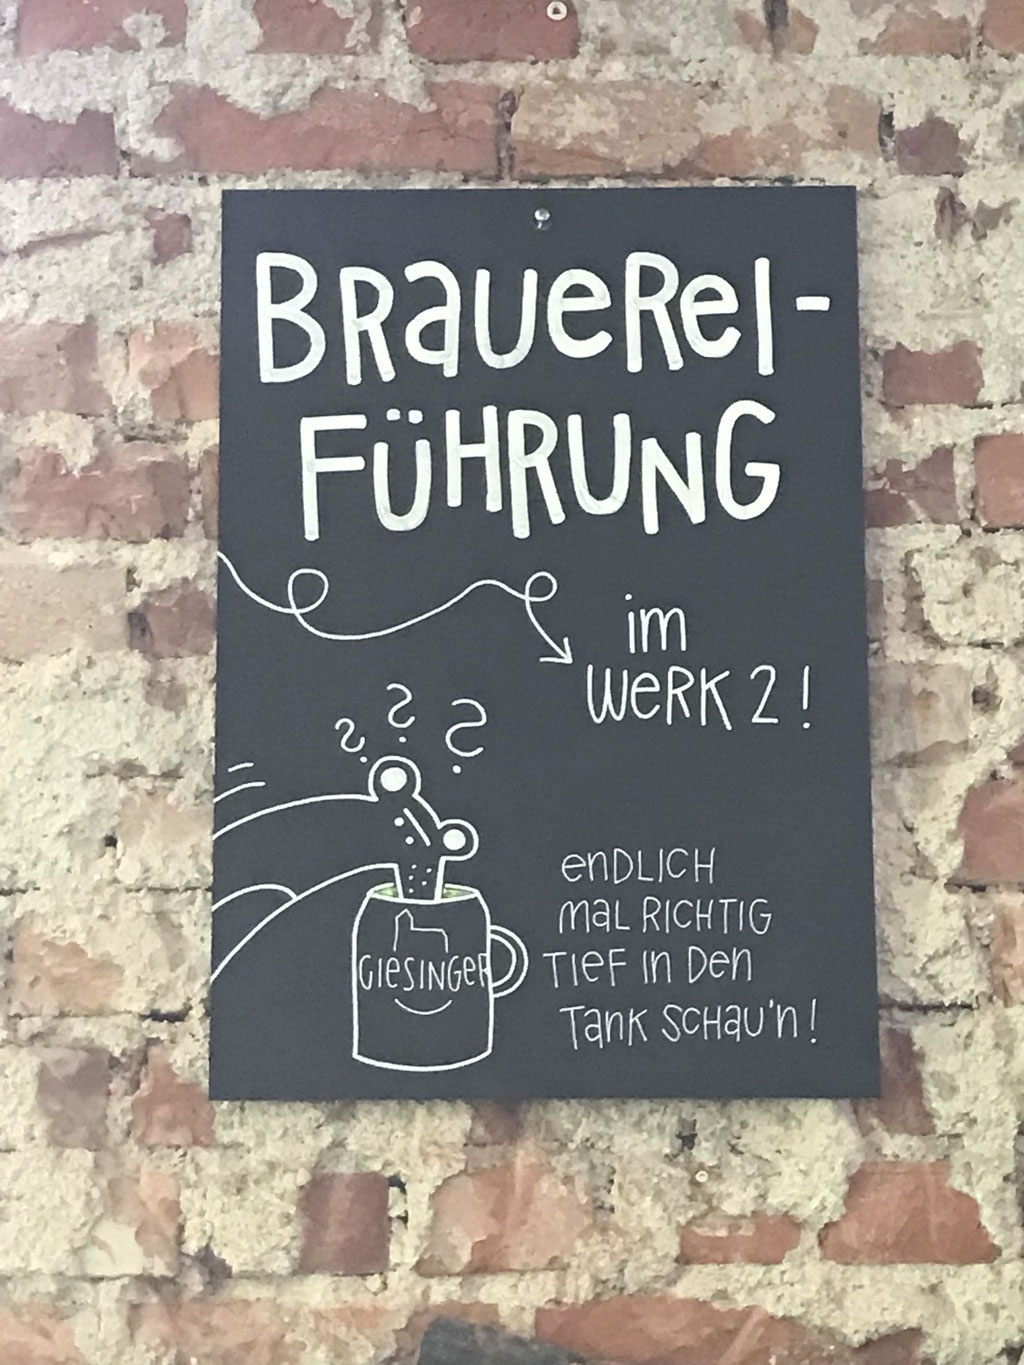 BRaUeReI-
FÜHRUNG
im
WeRK 2!
enDLICH
maL RICHTIG
TIEF in Den
Tank SCHaU'n!
GIeSINGER